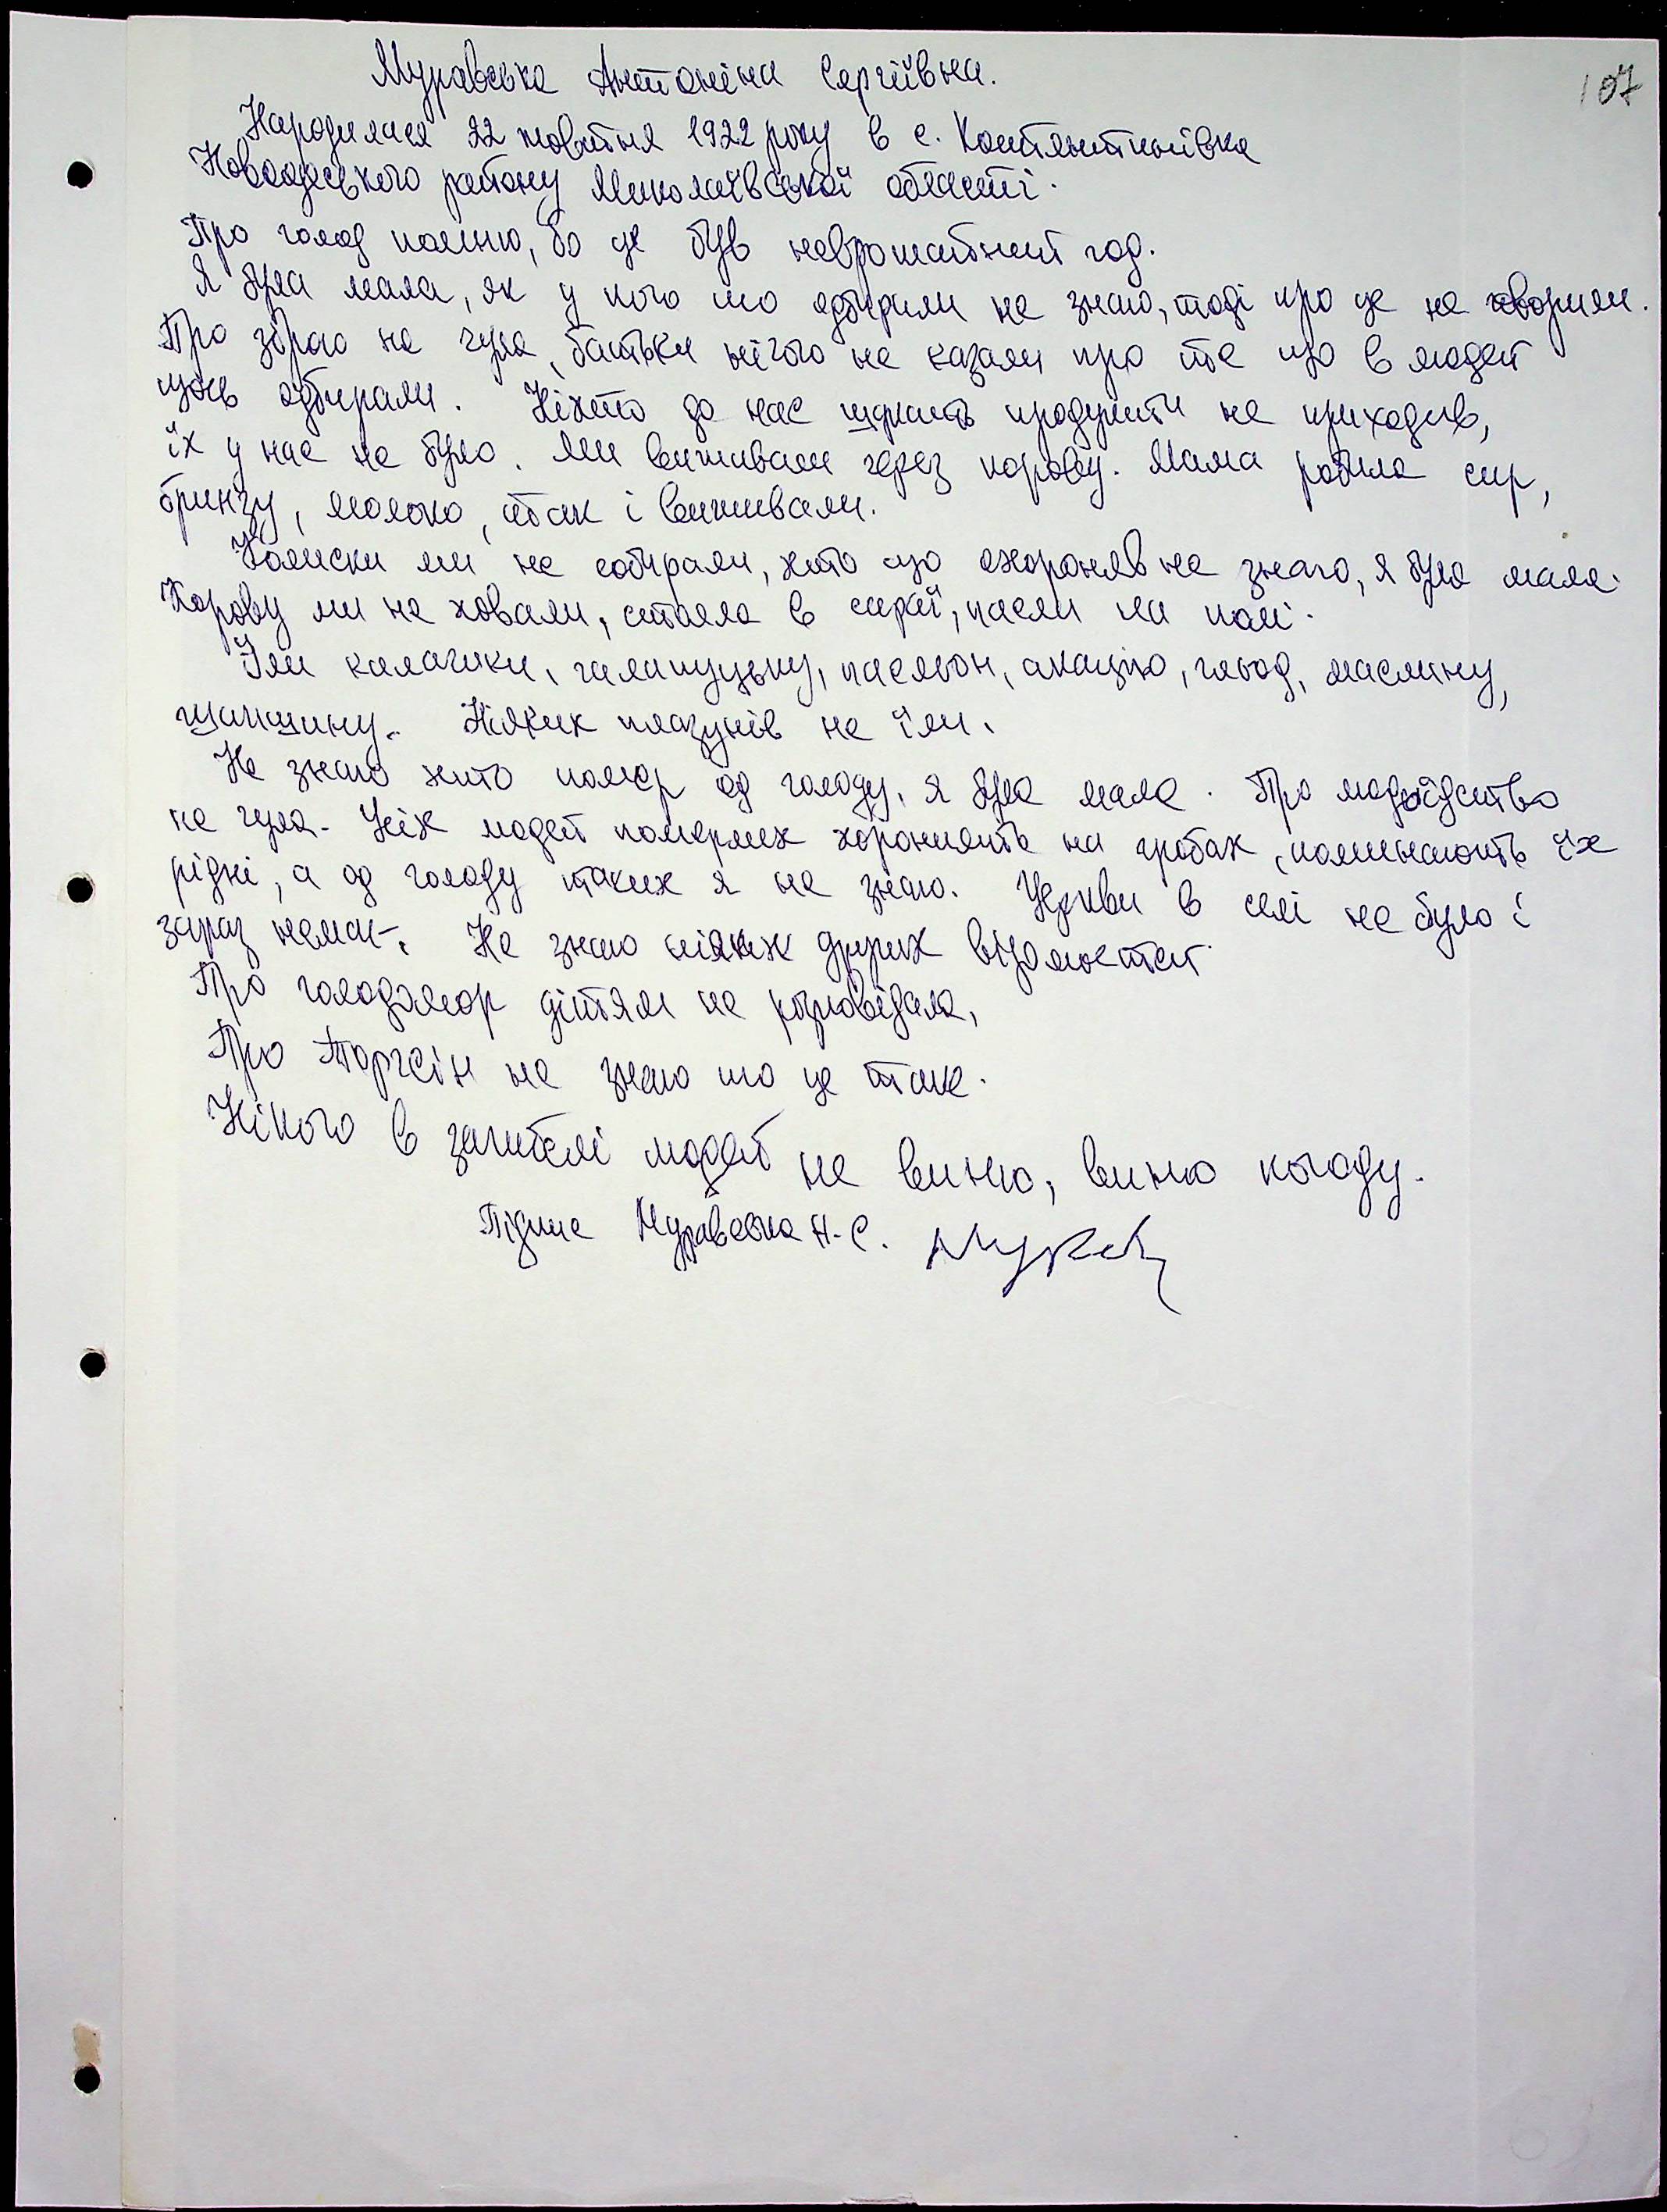 107
Муравська Антоніна Сергіївна.
Народилася 22 жовтня 1922 року в с. Костянтинівка
Новоодеського району Миколаївської області.
Про голод помню, бо це був неврожайний год.
Я була мала, як у кого шо одбирали не знаю, тоді про це не говорили.
Про зброю не чула, батьки нічого не казали про те що в людей
щось одбирали. Ніхто до нас шукать продукти не приходив,
їх у нас не було. Ми виживали через корову. Мама робила сир,
бринзу, молоко, так і виживали.
Колиски ми не собирали, хто що охороняв не знаю, я була мала.
Корову ми не ховали, стояла в сараї, пасли на полі.
Їли калачики, галапуцьку, пасльон, акацію, гльод, маслину,
щапщину. Ніяких плазунів не їли.
Не знаю хто помер од голоду, я була мала. Про людоїдство
не чула. Усіх людей померлих хоронять на гробах, поминають їх
рідні, а од голоду таких я не знаю. Церкви в селі не було і
зараз немає. Не знаю ніяких других відомостей.
Про голодомор дітям не розповідала,
Про Торгсін не знаю шо це таке.
Нікого в загибелі людей не виню, виню погоду.
Підпис Муравська А.С.